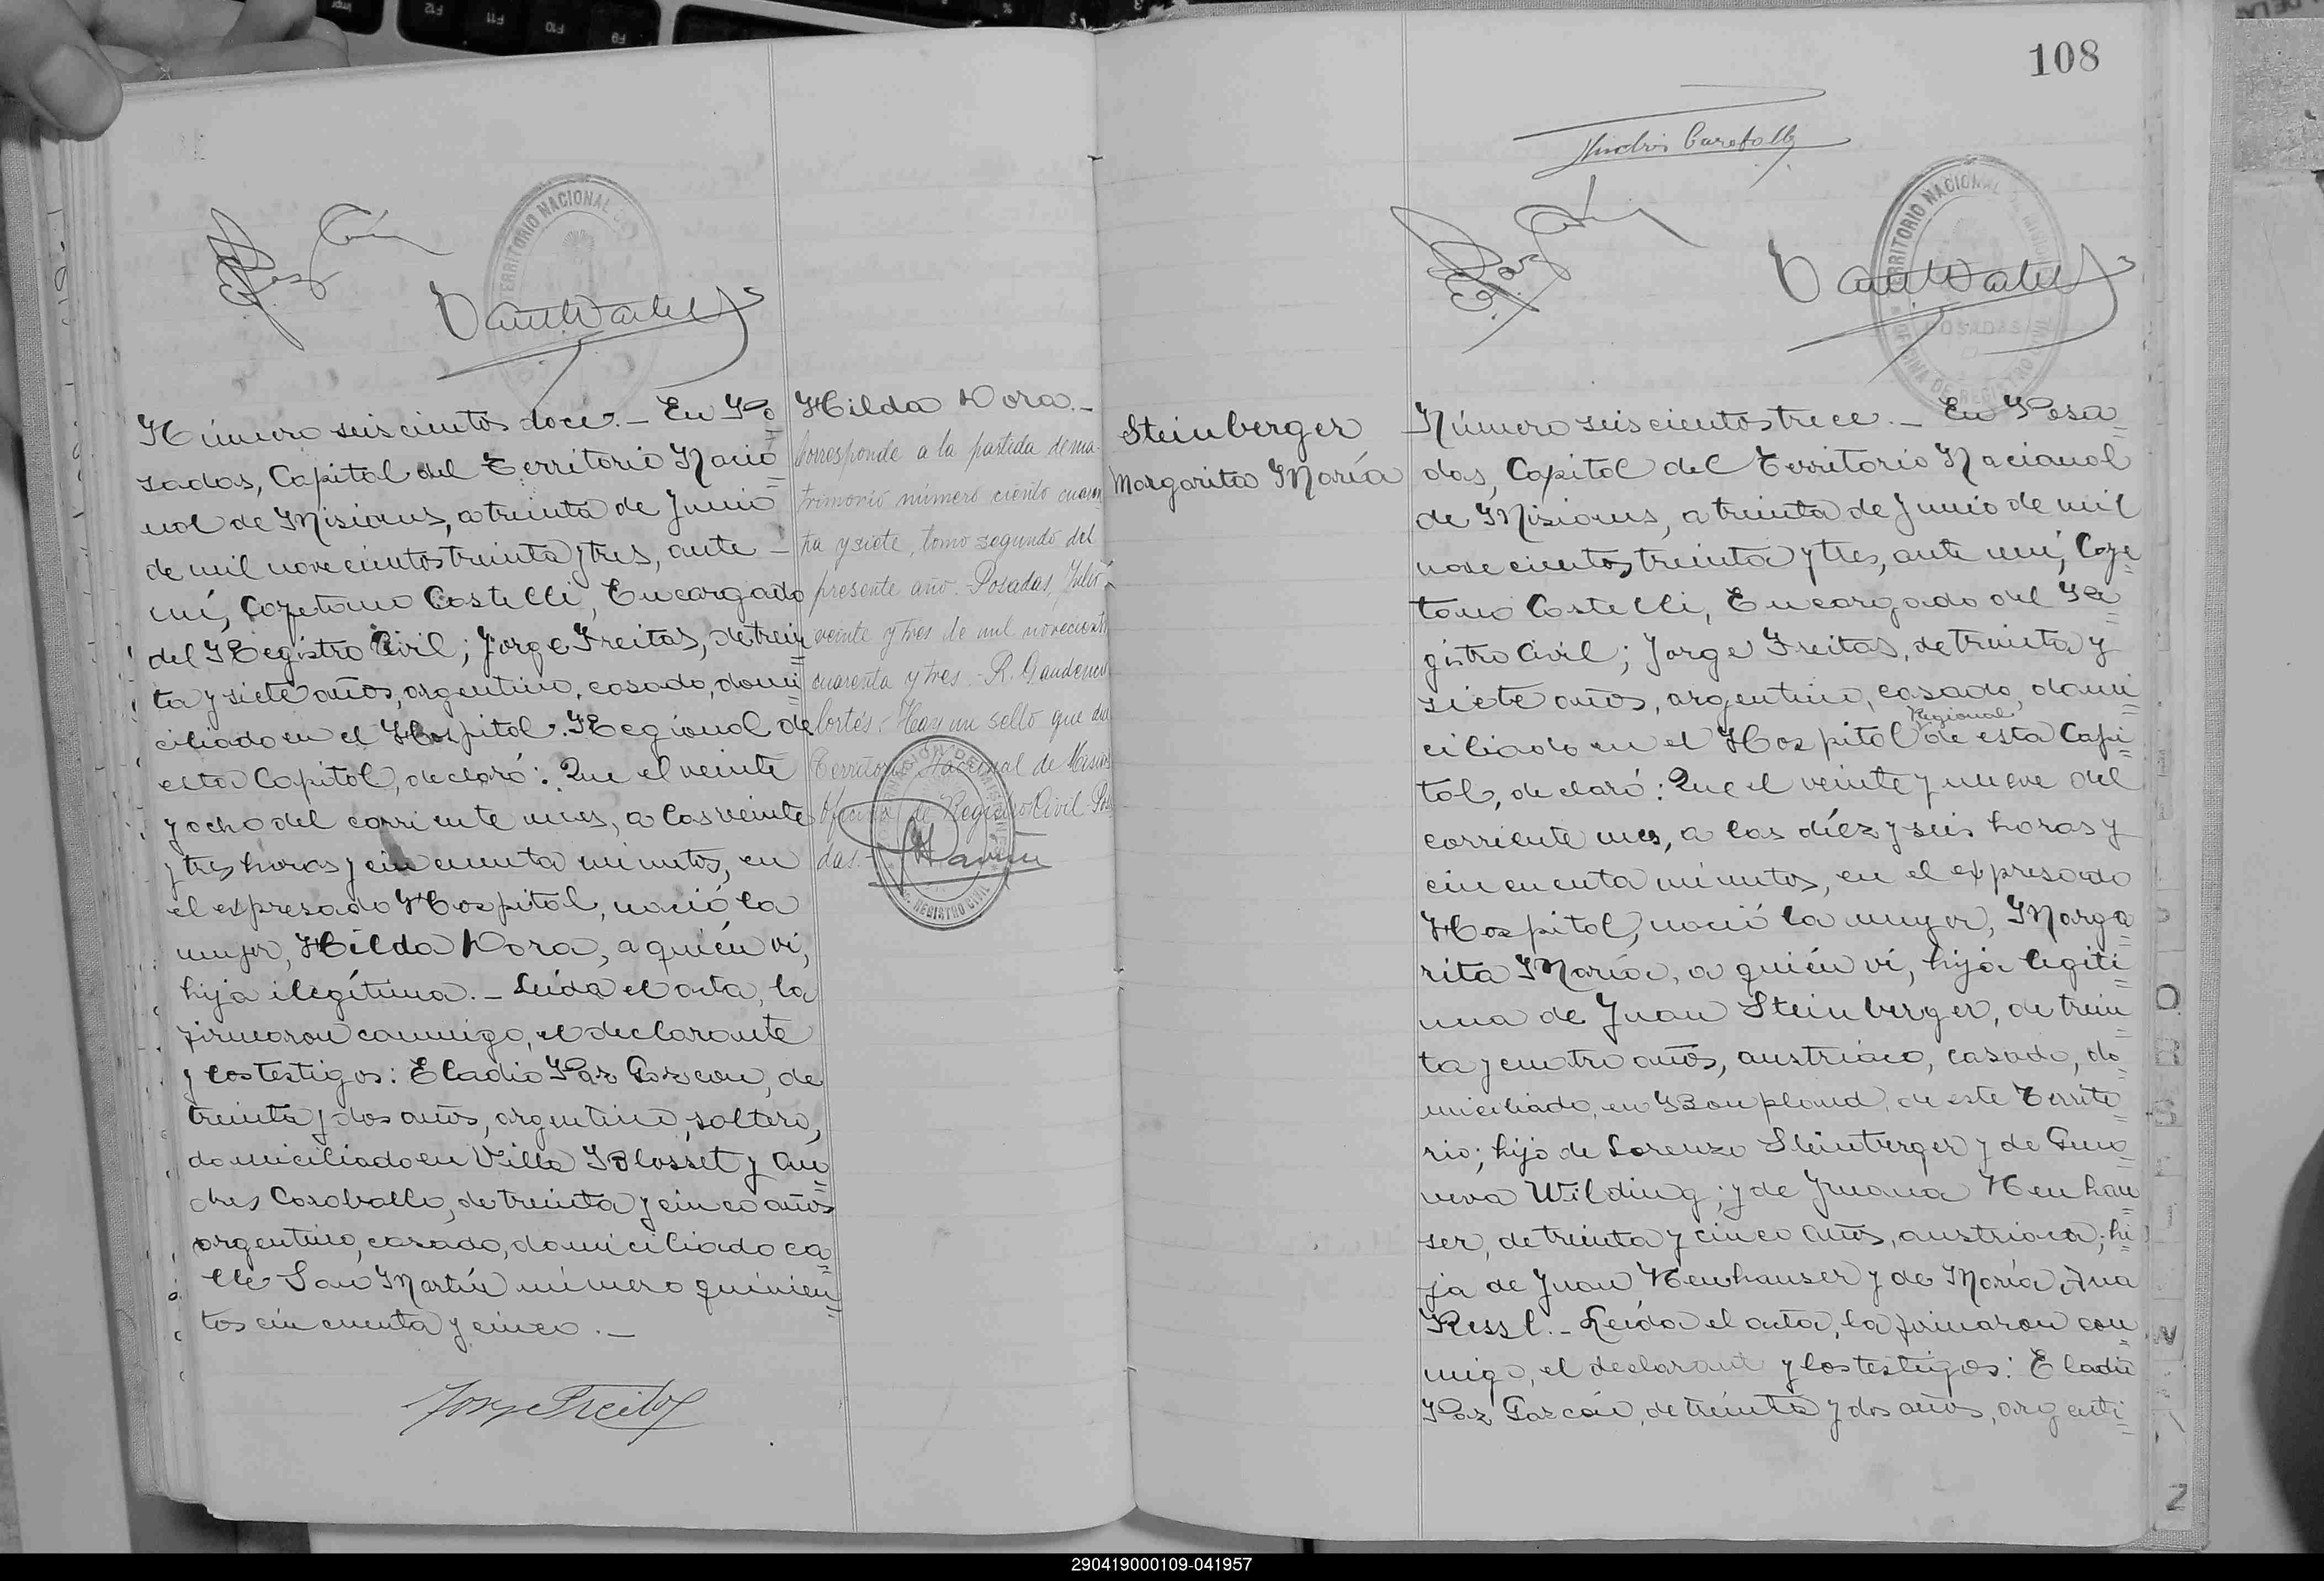 Número seiscientos doce. — En Po
sadas, Capital del Territorio Nacio
nal de Misiones, a treinta de Junio
de mil novecientos treinta y tres, ante
mí, Cayetano Castelli, Encargado
del Registro Civil; Jorge Freitas, de trein
ta y siete años, argentino, casado, domi
ciliado en el Hospital Regional de
esta Capital, declaró: Que el veinte
y ocho del corriente mes, a las veinte
y tres horas y cincuenta minutos, en
el expresado Hospital, nació la
mujer, Hilda Dora, a quién ví,
hija ilegítima. — Leída el acta, la
firmaron conmigo, el declarante
y los testigos: Eladio Paz Garzon, de
treinta y dos años, argentino, soltero,
domiciliado en Villa Blosset y An
dres Caraballo, de treinta y cinco años
argentino, casado, domiciliado ca
lle San Martín número quinien
tos cincuenta y cinco. —
Jorge Freitas
Hilda Dora. —
Corresponde a la partida de ma-
trimonio número ciento cuaren
ta y siete, tomo segundo del
presente año. - Posadas, Julio
veinte y tres de mil novecientos
cuarenta y tres. - R. Gaudencio
Cortés. - Hay un sello que dice
Territorio Nacional de Misiones
Oficina de Registro Civil - Posa
das. -
REGISTRO CIVIL
TERRITORIO NACIONAL DE
108
Andrés Caraballo
TERRITORIO NACIONAL DE MISIONES
POSADAS
OFICINA DE REGISTRO CIVIL
Steinberger
Margarita María
Número seiscientos trece. — En Posa
das, Capital del Territorio Nacional
de Misiones, a treinta de Junio de mil
novecientos treinta y tres, ante mí, Caye
tano Castelli, Encargado del Re
gistro Civil; Jorge Freitas, de treinta y
siete años, argentino, casado, domi
ciliado en el Hospital Regional de esta Capi
tal, declaró: Que el veinte y nueve del
corriente mes, a las diéz y seis horas y
cincuenta minutos, en el expresado
Hospital, nació la mujer, Marga
rita María, a quién ví, hija legíti
ma de Juan Steinberger, de trein
ta y cuatro años, austriaco, casado, do
miciliado, en Bonpland, de este Territo
rio; hijo de Lorenzo Steinberger y de Geno
veva Wilding; y de Juana Neuhau
ser, de treinta y cinco años, austriaca; hi
ja de Juan Neuhauser y de María Ana
Ressl. — Leída el acta, la firmaron con
migo, el declarante y los testigos: Eladio
Paz Garzón, de treinta y dos años, argenti
290419000109-041957